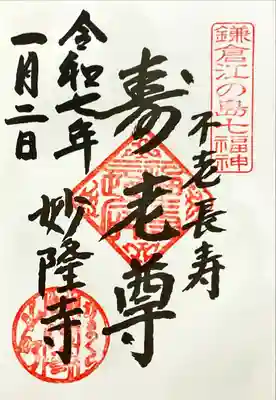 鎌倉江の島七福神
不老長寿
寿老尊
妙隆寺
令和七年
一月二日